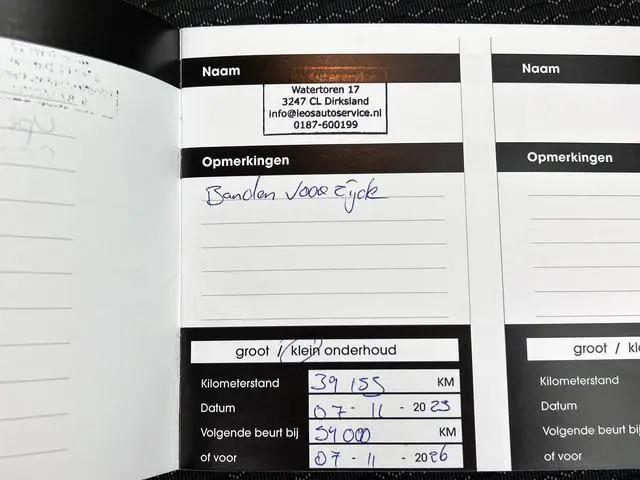 Naam
Watertoren 17
3247 CL Dirksland
info@leosautoservice.nl
0187-600199
Opmerkingen
Banden voorzijde
groot / klein onderhoud
Kilometerstand 39 155 KM
Datum 07 - 11 - 2023
Volgende beurt bij 54000 KM
of voor 07 - 11 - 2026
Naam
Opmerkingen
groot / kl
Kilometerstand
Datum
Volgende beurt bij
of voor